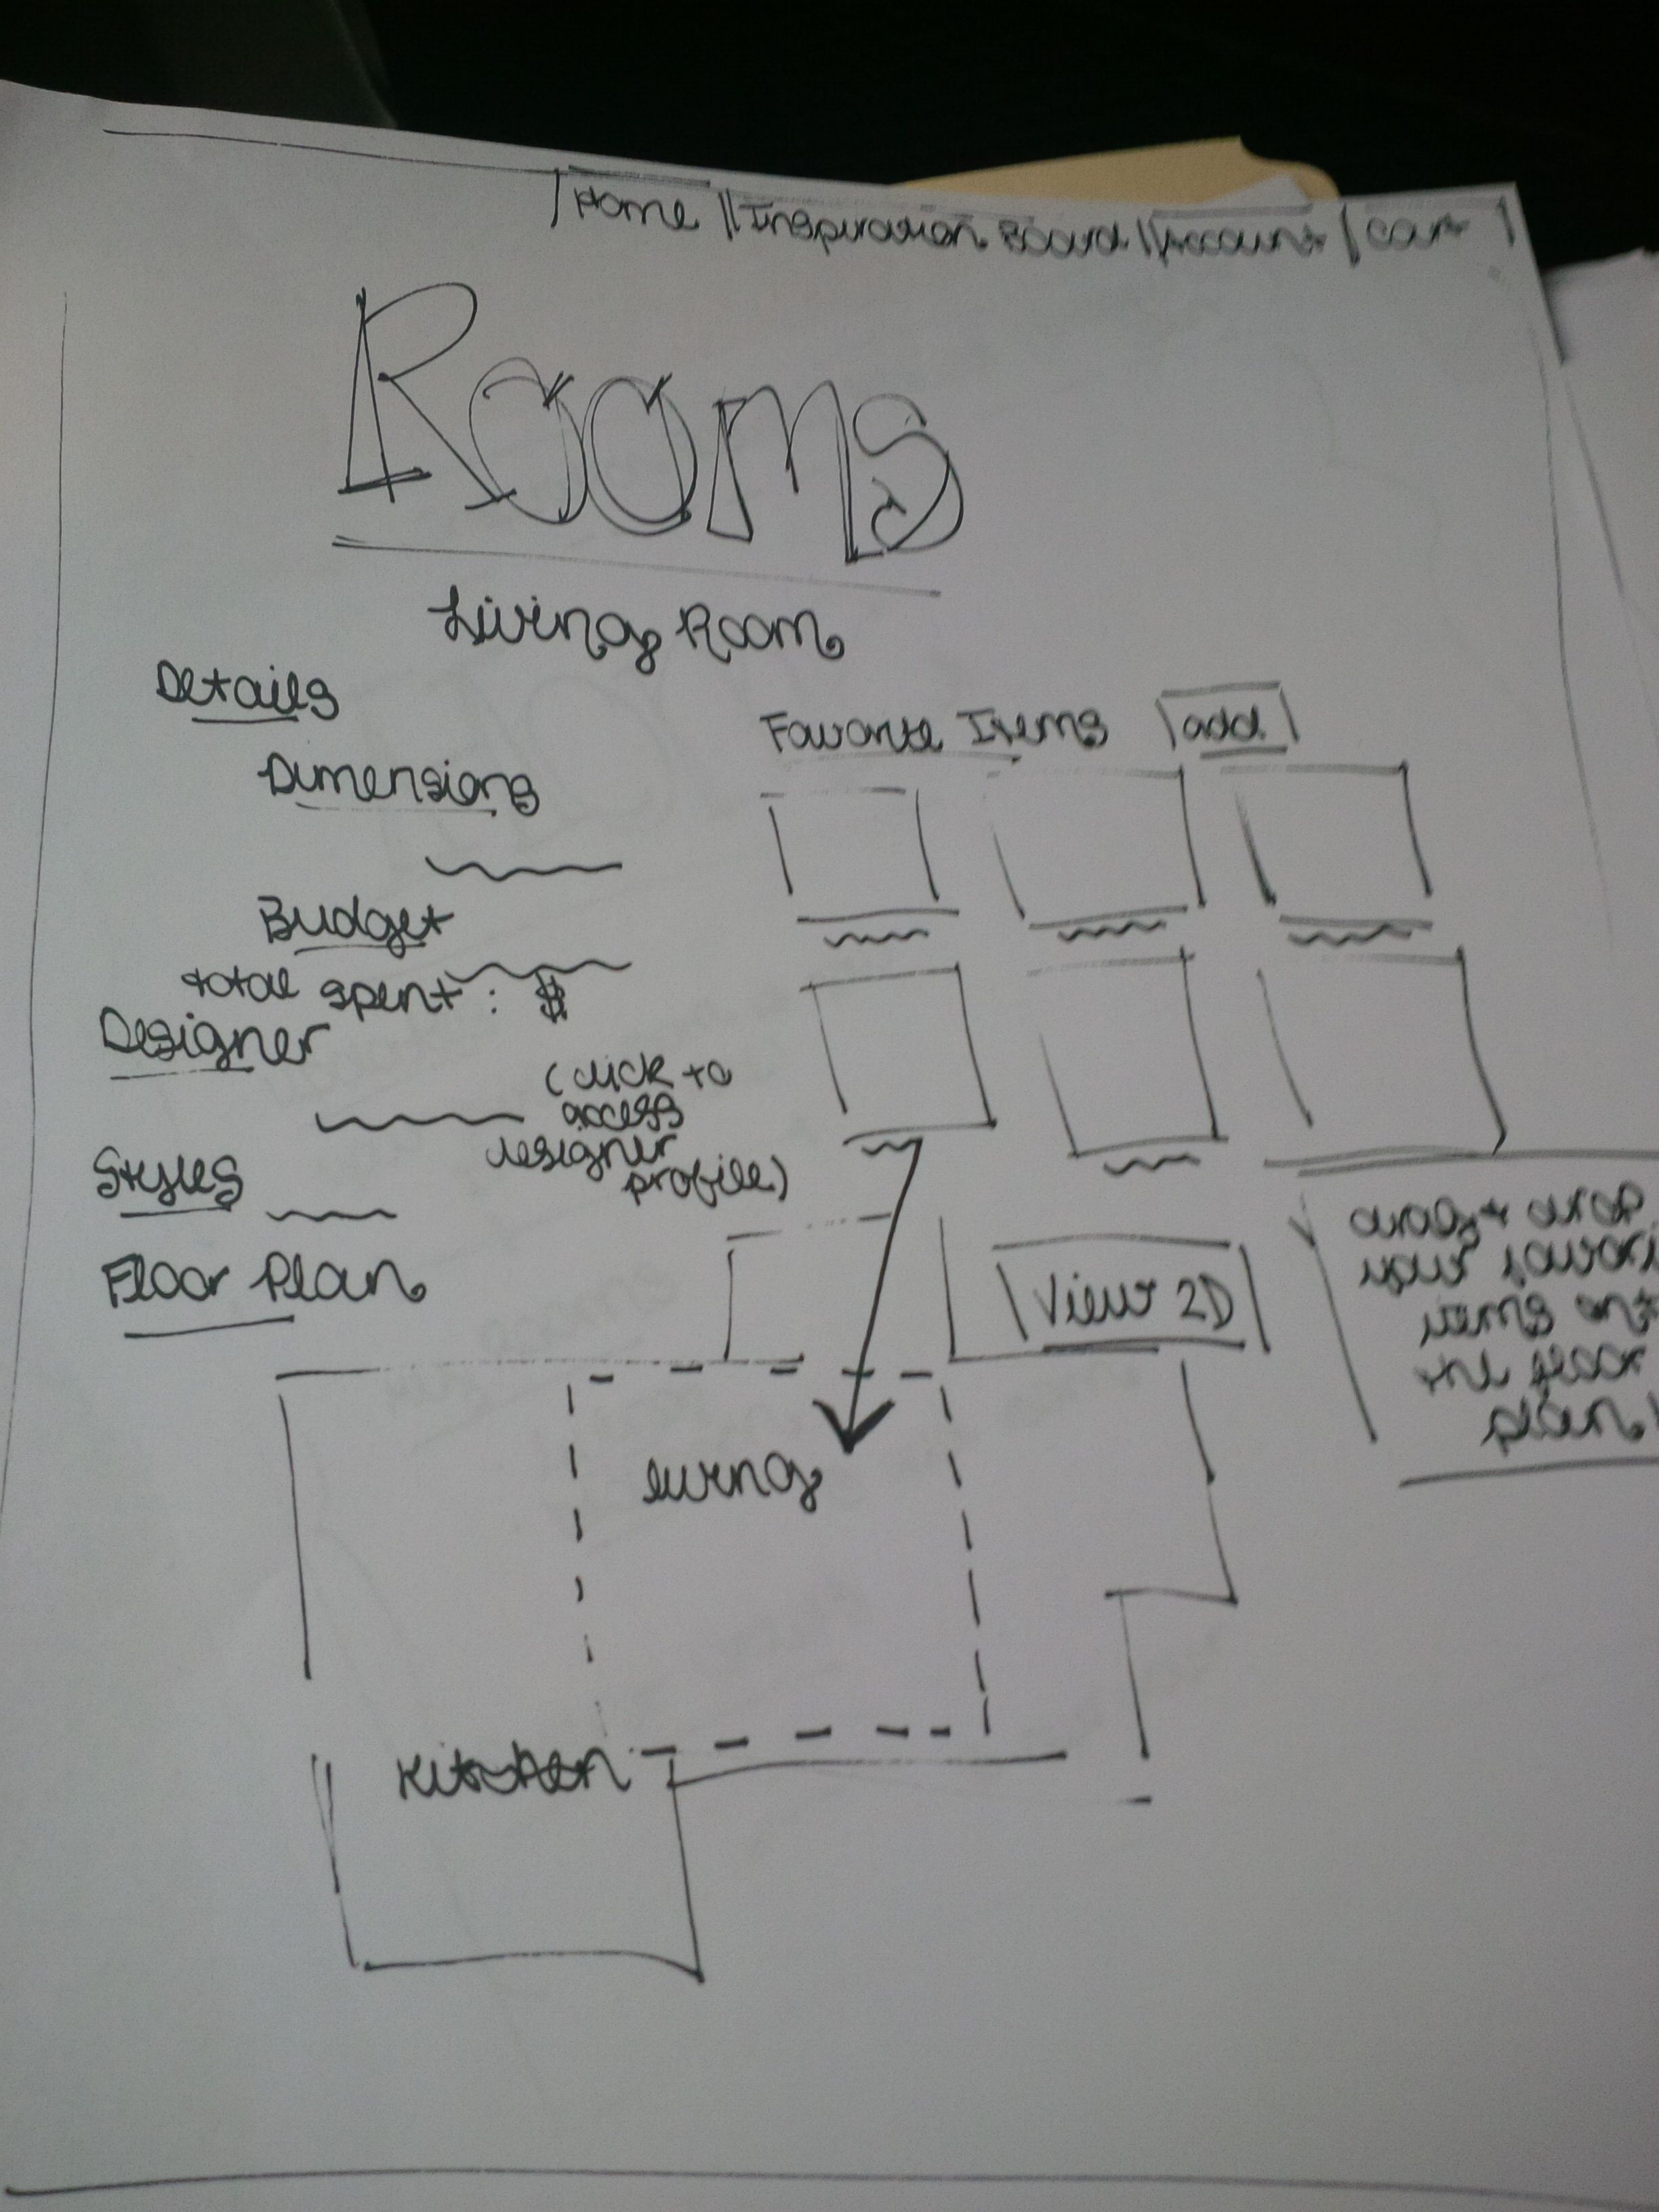 Home Inspiration Board Account Cart
Rooms
Living Room
Details
Favorite Items add
Dimensions
Budget
total spent: $
Designer
(click to
access
designer
profile)
Styles
Floor Plan
View 2D
drag + drop
your favori
items ont
the floor
plan!
living
Kitchen